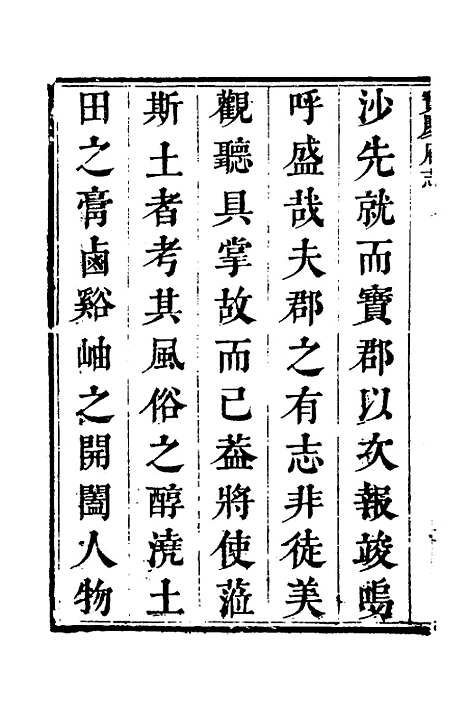 寶慶府志
沙先就而寶郡以次報竣嗚
呼盛哉夫郡之有志非徒美
觀聽具掌故而已葢將使蒞
斯土者考其風俗之醇澆土
田之膏鹵谿岫之開闔人物